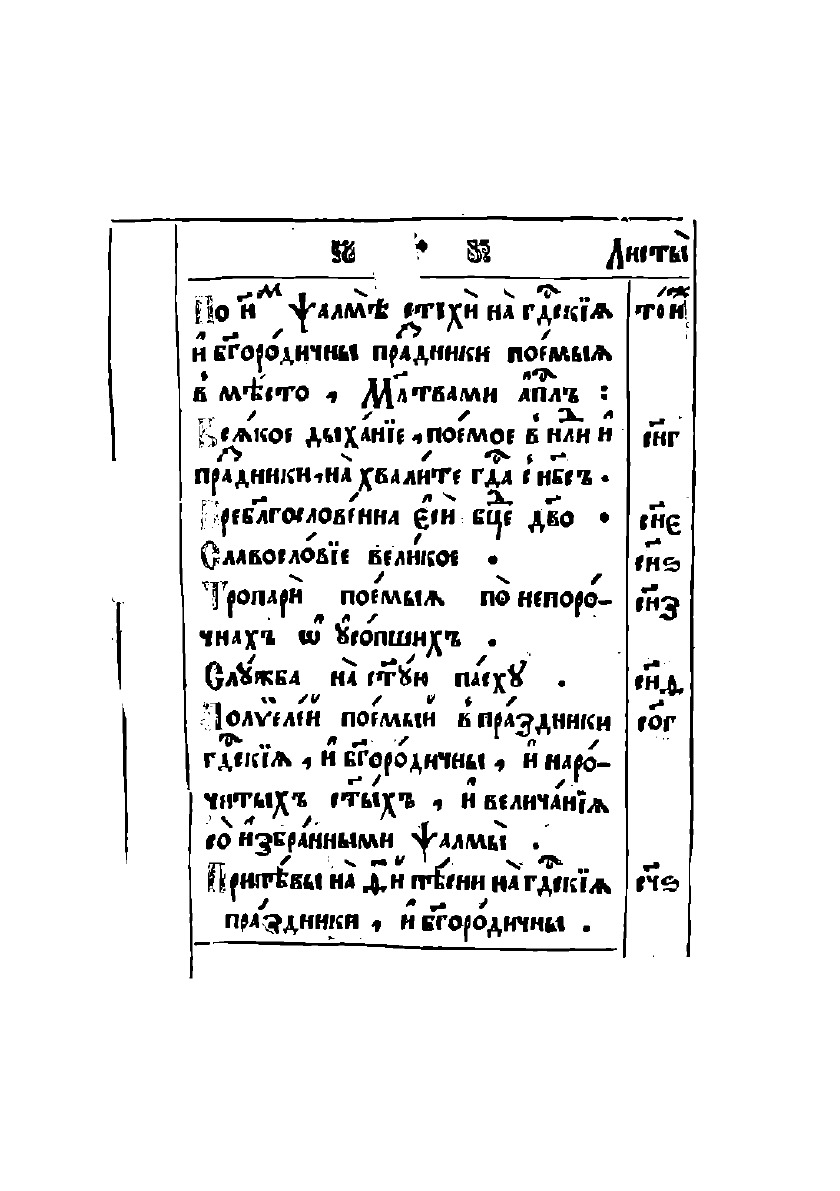 Листы̀
По н҃м ѱалмѣ̀ стіхѝ на̀ гд҃скїѧ то́иⷤ
и҆ бг҃оро́дичны пра́дники пое́мыѧ
в мѣ́сто , Мл҃твами а҆пⷭ҇лъ :
Всѧ́кое дыха́нїе , пое́мое в нⷣли и҆ сн҃г
пра́дники , на̀ хвали́те гдⷭ҇а с нб҃съ .
Пребл҃гослове́нна є҆сѝ бц҃е дв҃о . сн҃є
Славосло́вїе вели́кое . сн҃ѕ
Тропарѝ пое́мыѧ по̀ непоро́- сн҃з
чнахъ ѿ ᲂу҆со́пшихъ .
Слꙋ́жба на̀ ст҃ꙋ́ю па́схꙋ . сн҃д
Полѵеле́й пое́мый в пра́здники со҃г
гдⷭ҇скїѧ , и҆ бг҃оро́дичны , и҆ наро́-
читыхъ ст҃ы́хъ , и҆ велича́нїѧ
со̀ и҆збра́нными ѱалмы̀ .
Припѣ́вы на̀ д҃ й пѣ́сни на̀ гдⷭ҇скїѧ сч҃ѕ
пра́здники , и҆ бг҃оро́дичны .